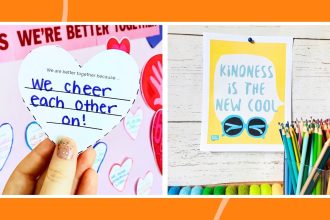 S WE'RE BETTER TOGETHER
We are better together because...
We cheer
each other
on!
KINDNESS
IS THE
NEW COOL